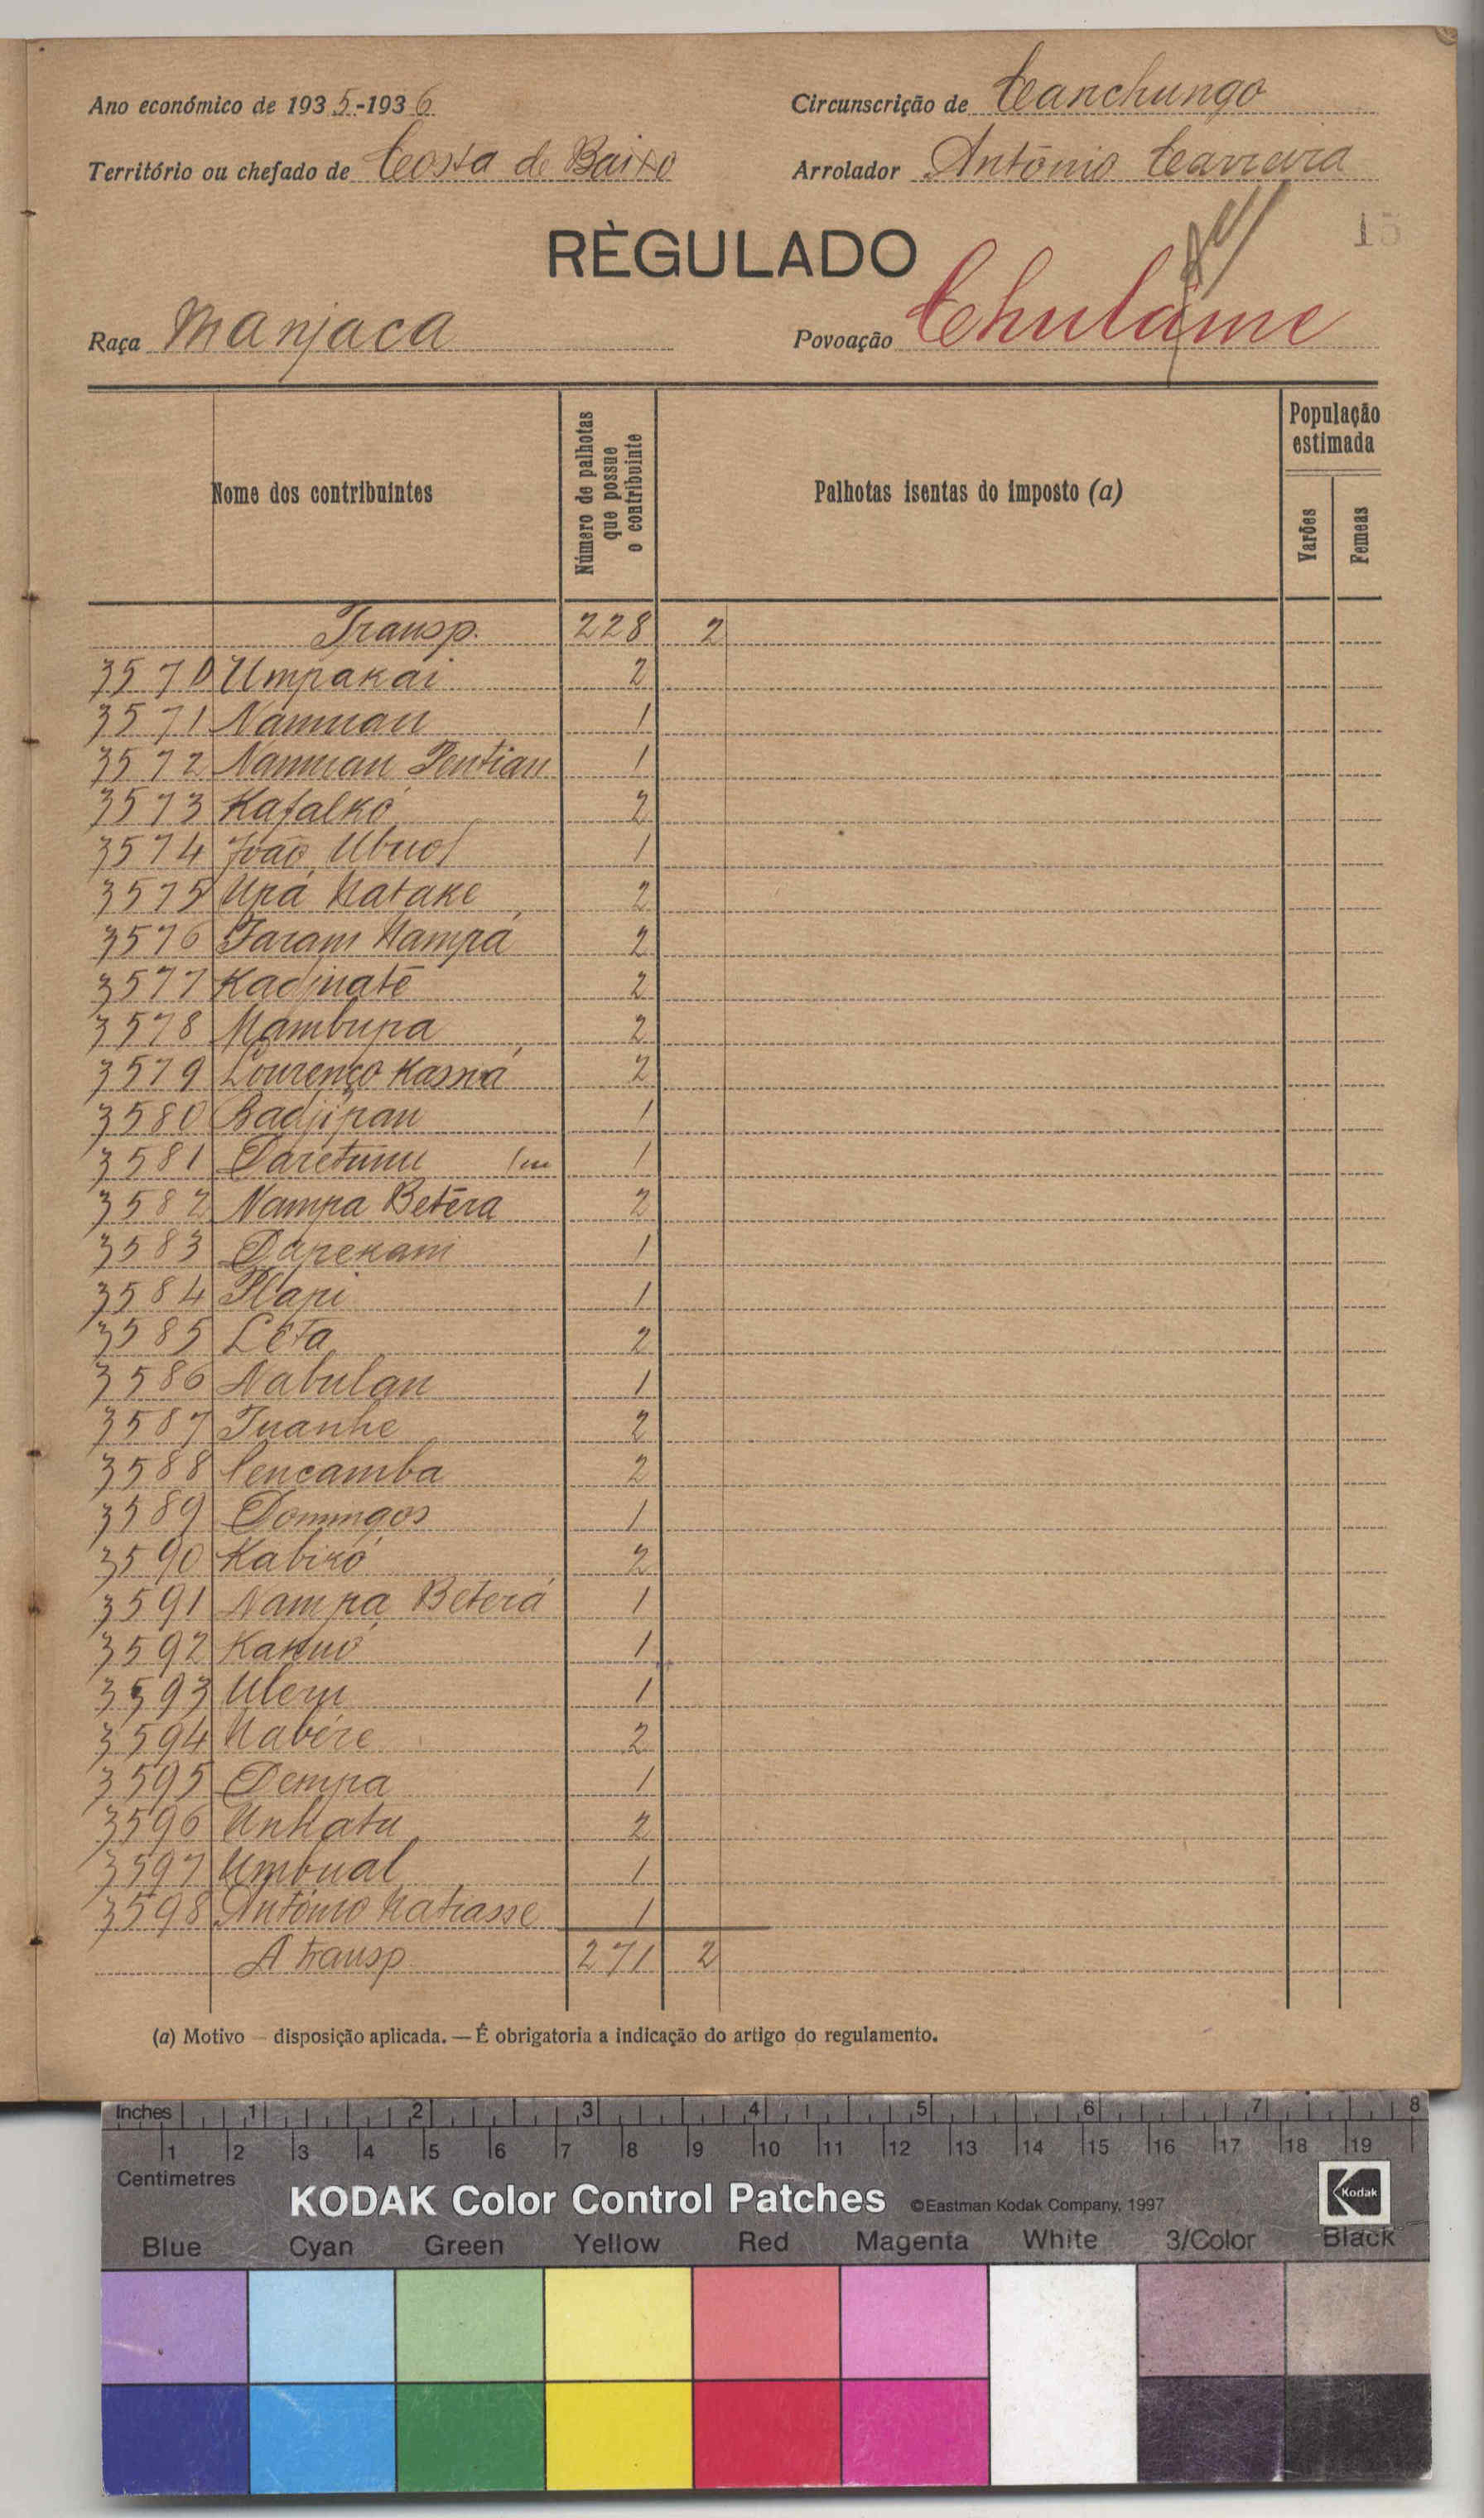 Ano económico de 1935-1936
Circunscrição de Canchungo
Território ou chefado de Costa de Baixo
Arrolador António Carreira
15
RÈGULADO
Raça Manjaca
Povoação Chulame
Nome dos contribuintes
Número de palhotas que possue o contribuinte
Palhotas isentas do imposto (a)
População estimada
Varões
Femeas
Transp. 228 2
3570 Umpakai 2
3571 Namuan 1
3572 Namuan Pentian 1
3573 Kafalkó 2
3574 João Ubuol 1
3575 Upá Natake 2
3576 Jaram Nampá 2
3577 Kadjnaté 2
3578 Mambupa 2
3579 Lourenço Kassiá 2
3580 Badjipan 1
3581 Daretumu 1
3582 Nampa Betéra 2
3583 Dapekam 1
3584 Plapi 1
3585 Léta 2
3586 Nabulan 1
3587 Tuanhe 2
3588 Pencamba 2
3589 Domingos 1
3590 Kabikó 2
3591 Nampa Beterá 1
3592 Kakuó 1
3593 Ulem 1
3594 Nabére 2
3595 Dempa 1
3596 Unkatu 2
3597 Umbual 1
3598 António Natiasse 1
A transp 271 2
(a) Motivo — disposição aplicada. — É obrigatoria a indicação do artigo do regulamento.
Inches 1 2 3 4 5 6 7 8
1 2 3 4 5 6 7 8 9 10 11 12 13 14 15 16 17 18 19
Centimetres
KODAK Color Control Patches ©Eastman Kodak Company, 1997 Kodak
Blue Cyan Green Yellow Red Magenta White 3/Color Black